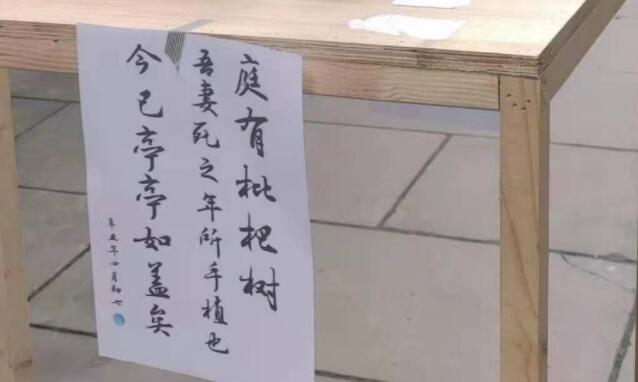 庭有枇杷树
吾妻死之年所手植也
今已亭亭如盖矣
辛丑年四月初七